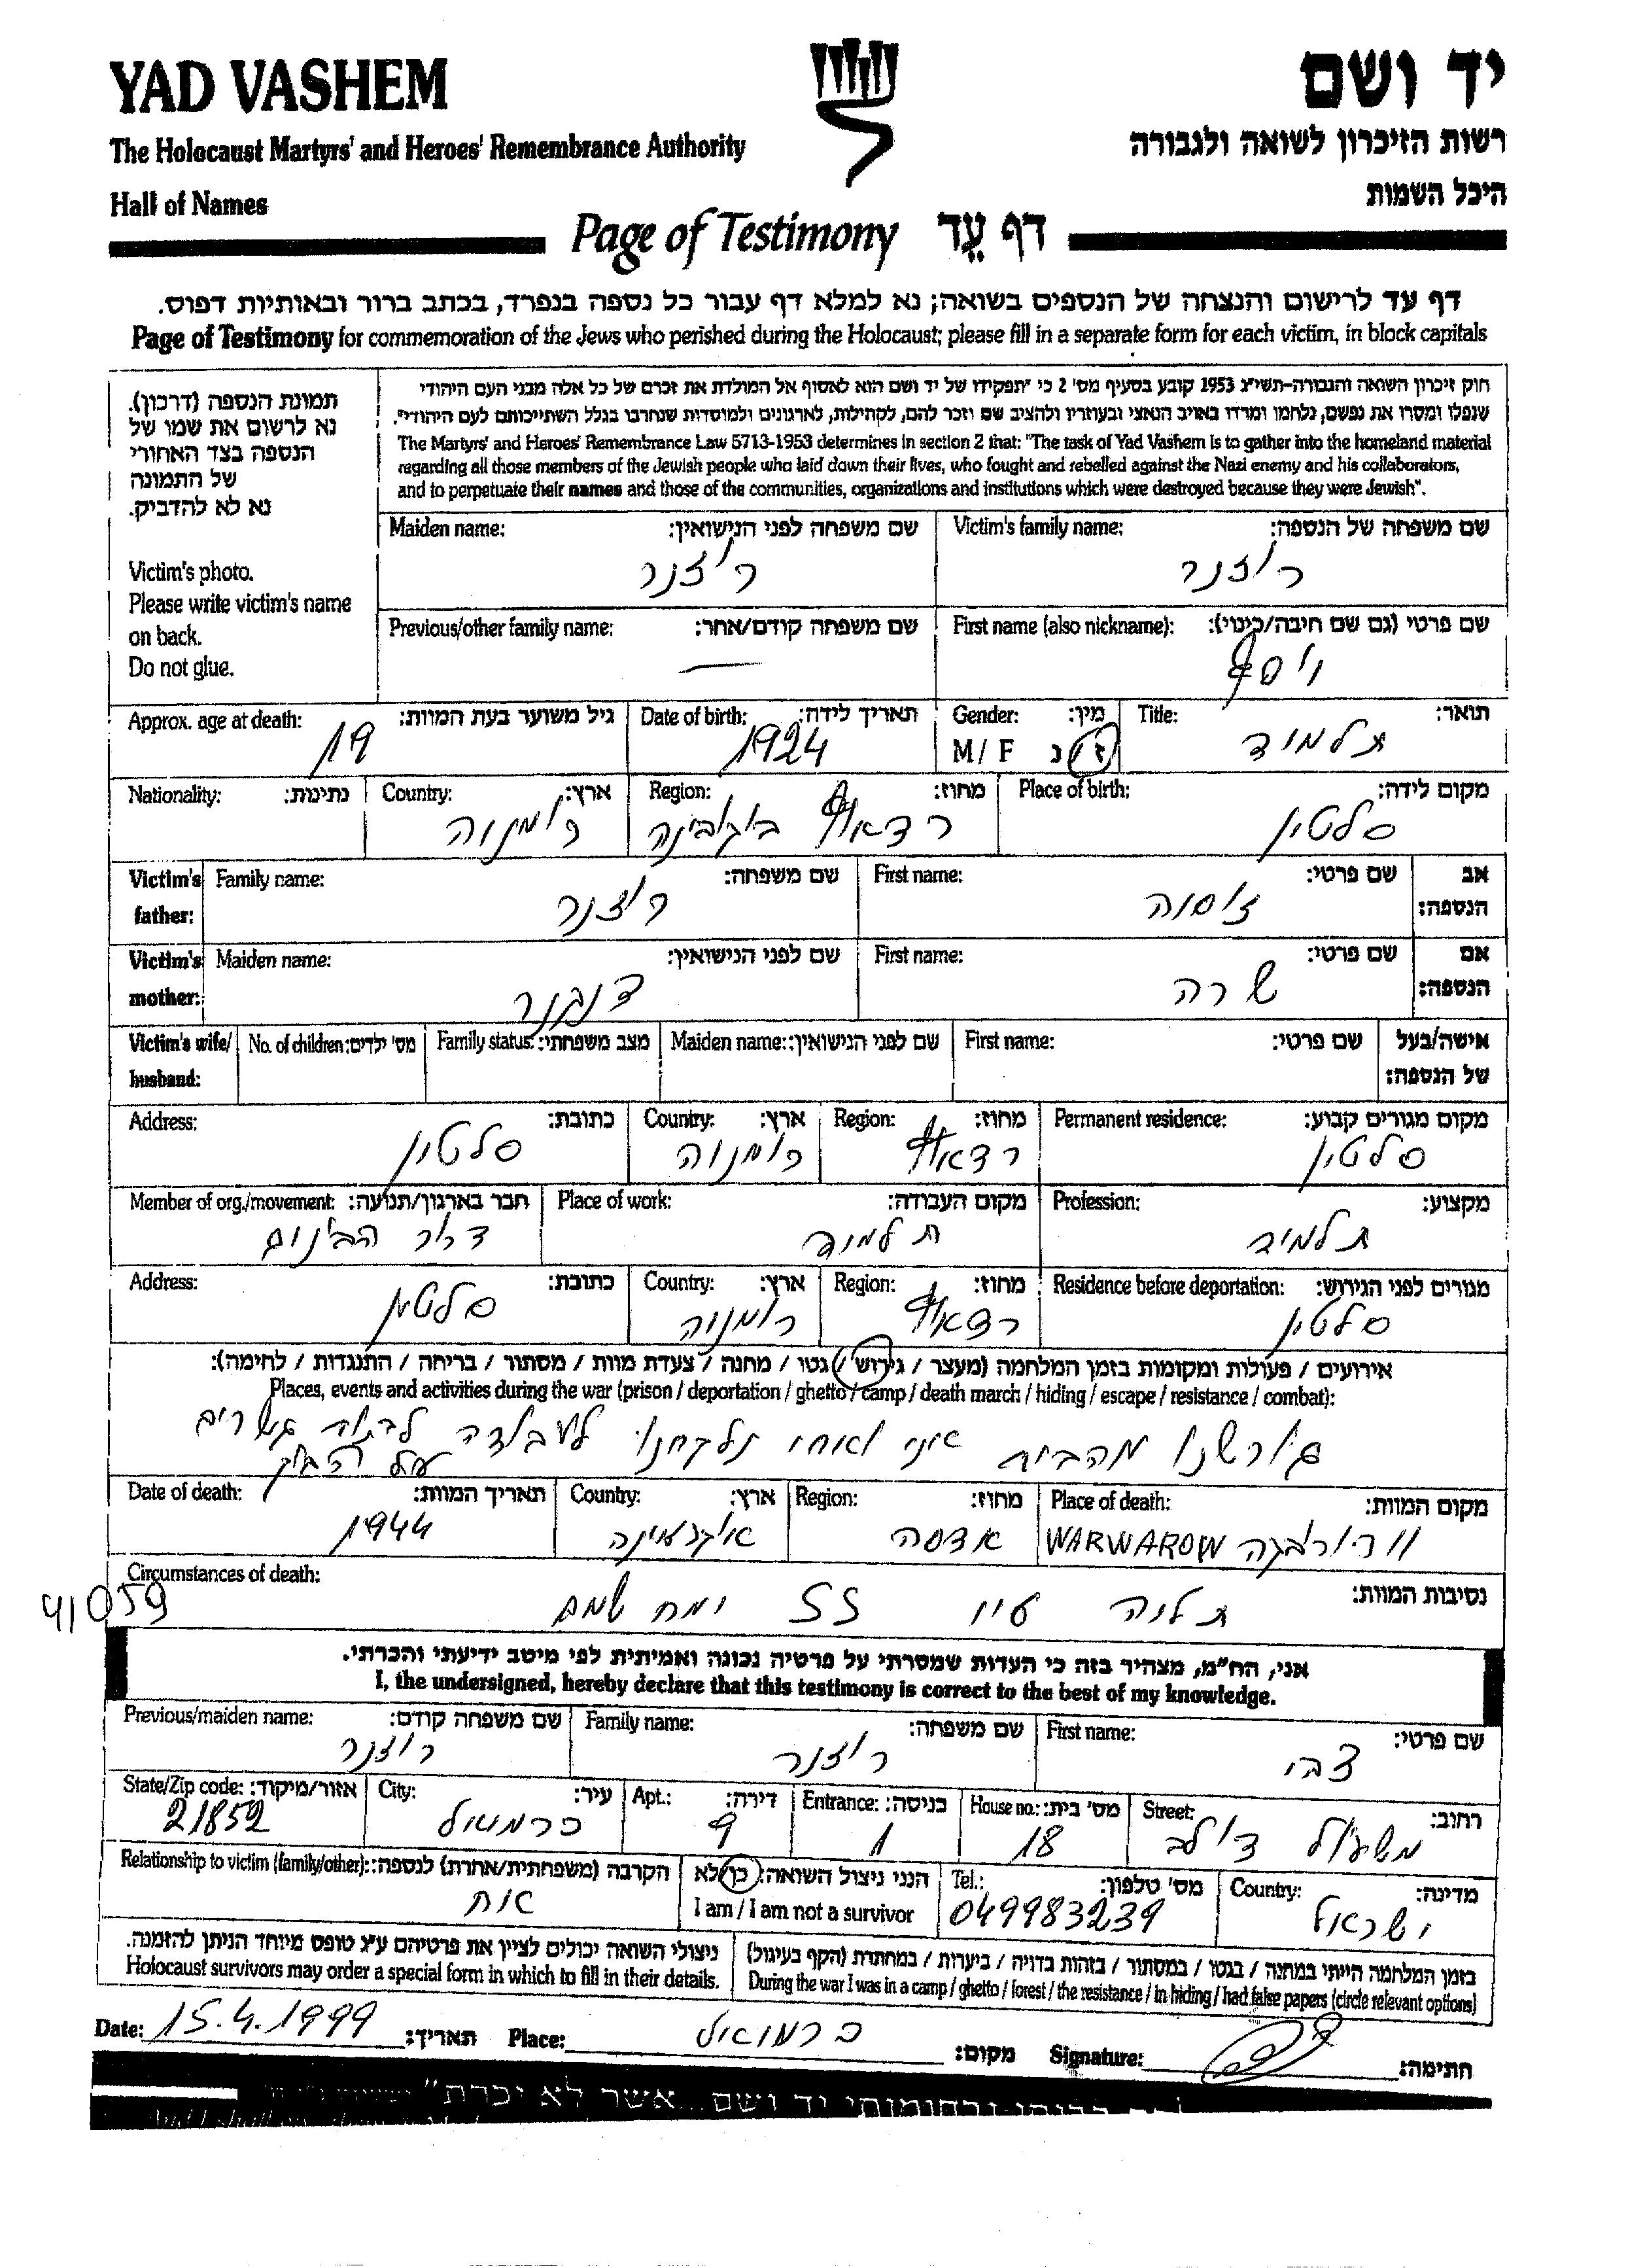 YAD VASHEM
יד ושם
The Holocaust Martyrs' and Heroes' Remembrance Authority
רשות הזיכרון לשואה ולגבורה
Hall of Names
היכל השמות
Page of Testimony דף עֵד
דף עד לרישום והנצחה של הנספים בשואה; נא למלא דף עבור כל נספה בנפרד, בכתב ברור ובאותיות דפוס.
Page of Testimony for commemoration of the Jews who perished during the Holocaust; please fill in a separate form for each victim, in block capitals
תמונת הנספה (דרכון).
נא לרשום את שמו של
הנספה בצד האחורי
של התמונה
נא לא להדביק.
Victim's photo.
Please write victim's name
on back.
Do not glue.
חוק זיכרון השואה והגבורה-תשי"ג 1953 קובע בסעיף מס' 2 כי "תפקידו של יד ושם הוא לאסוף אל המולדת את זכרם של כל אלה מבני העם היהודי
שנפלו ומסרו את נפשם, נלחמו ומרדו באויב הנאצי ובעוזריו ולהציב שם וזכר להם, לקהילות, לארגונים ולמוסדות שנחרבו בגלל השתייכותם לעם היהודי".
The Martyrs' and Heroes' Remembrance Law 5713-1953 determines in section 2 that: "The task of Yad Vashem is to gather into the homeland material
regarding all those members of the Jewish people who laid down their lives, who fought and rebelled against the Nazi enemy and his collaborators,
and to perpetuate their names and those of the communities, organizations and institutions which were destroyed because they were Jewish".
Victim's family name: שם משפחה של הנספה:
רוזנר
Maiden name: שם משפחה לפני הנישואין:
רוזנר
First name (also nickname): שם פרטי (גם שם חיבה/כינוי):
יוסף
Previous/other family name: שם משפחה קודם/אחר:
Title: תואר:
תלמיד
Gender: מין:
M/ F ז/נ
Date of birth: תאריך לידה:
1924
Approx. age at death: גיל משוער בעת המוות:
19
Place of birth: מקום לידה:
סלטין
Region: מחוז:
רדאוץ בוקובינה
Country: ארץ:
רומניה
Nationality: נתינות:
Victim's father: אב הנספה:
First name: שם פרטי:
זוסיה
Family name: שם משפחה:
רוזנר
Victim's mother: אם הנספה:
First name: שם פרטי:
שרה
Maiden name: שם לפני הנישואין:
Victim's wife/ husband: אישה/בעל של הנספה:
First name: שם פרטי:
Maiden name: שם לפני הנישואין:
Family status: מצב משפחתי:
No. of children: מס' ילדים:
Permanent residence: מקום מגורים קבוע:
סלטין
Region: מחוז:
רדאוץ
Country: ארץ:
רומניה
Address: כתובת:
סלטין
Profession: מקצוע:
תלמיד
Place of work: מקום העבודה:
תלמיד
Member of org./movement: חבר בארגון/תנועה:
דרור הבונים
Residence before deportation: מגורים לפני הגירוש:
סלטין
Region: מחוז:
רדאוץ
Country: ארץ:
רומניה
Address: כתובת:
סלטין
אירועים / פעולות ומקומות בזמן המלחמה (מעצר / גירוש / גטו / מחנה / צעדת מוות / מסתור / בריחה / התנגדות / לחימה):
Places, events and activities during the war (prison / deportation / ghetto / camp / death march / hiding / escape / resistance / combat):
גורשנו מהבית אני ואחי נלקחנו לעבודה לבנות גשרים
על הבוג
Place of death: מקום המוות:
WARWAROW
Region: מחוז:
אדסה
Country: ארץ:
אוקראינה
Date of death: תאריך המוות:
1944
Circumstances of death: נסיבות המוות:
תליה ע"י SS ימח שמם
41059
אני, הח"מ, מצהיר בזה כי העדות שמסרתי על פרטיה נכונה ואמיתית לפי מיטב ידיעתי והכרתי.
I, the undersigned, hereby declare that this testimony is correct to the best of my knowledge.
First name: שם פרטי:
צבי
Family name: שם משפחה:
רוזנר
Previous/maiden name: שם משפחה קודם:
רוזנר
Street: רחוב:
משעול דולב
House no.: מס' בית:
18
Entrance: כניסה:
1
Apt.: דירה:
9
City: עיר:
כרמיאל
State/Zip code: אזור/מיקוד:
21852
Country: מדינה:
ישראל
Tel.: מס' טלפון:
049983239
הנני ניצול השואה: כן/לא
I am / I am not a survivor
Relationship to victim (family/other): הקרבה (משפחתית/אחרת) לנספה:
אח
בזמן המלחמה הייתי במחנה / בגטו / במסתור / בזהות בדויה / ביערות / במחתרת (הקף בעיגול)
During the war I was in a camp / ghetto / forest / the resistance / in hiding / had false papers (circle relevant options)
ניצולי השואה יכולים לציין את פרטיהם ע"ג טופס מיוחד הניתן להזמנה.
Holocaust survivors may order a special form in which to fill in their details.
Date: 15.4.1999 תאריך:
Place: כרמיאל מקום:
Signature: חתימה:
יד ושם... אשר לא יכרת"